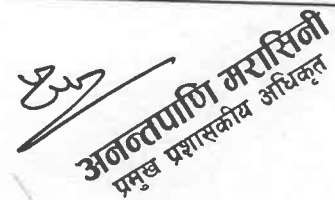 अनन्तपाणि मरासिनी
प्रमुख प्रशासकीय अधिकृत